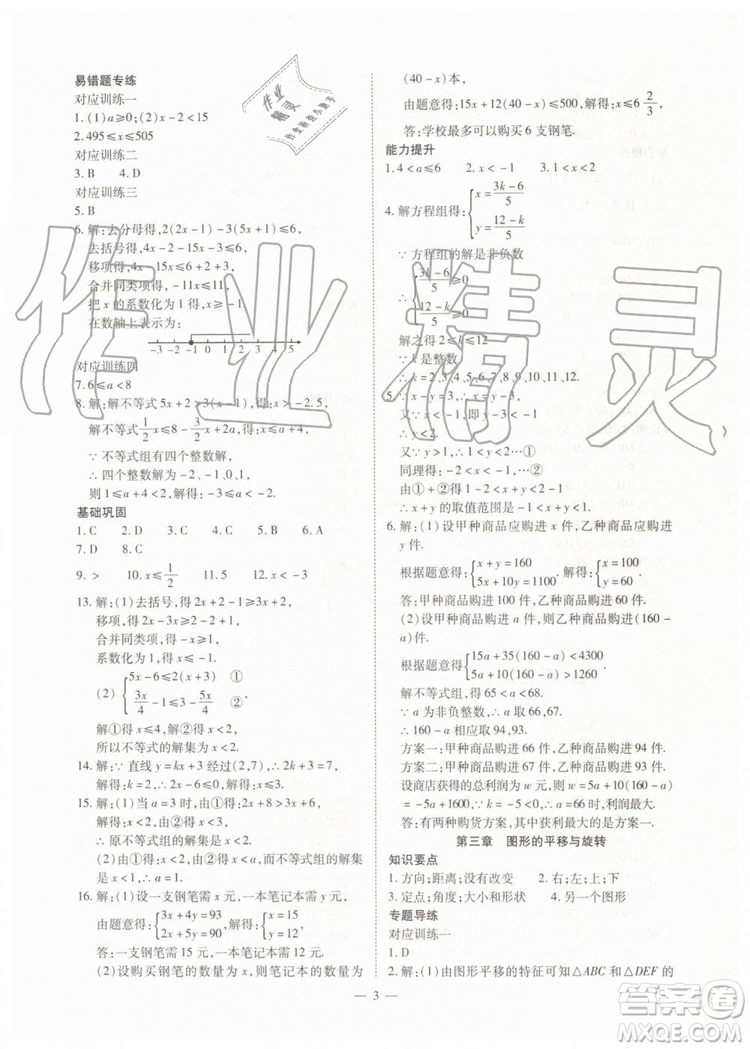 易错题专练
对应训练一
1. (1)a≥0;(2)x-2<15
2. 495≤x≤505
对应训练二
3. B 4. D
对应训练三
5. B
6. 解:去分母得,2(2x-1)-3(5x+1)≤6,
去括号得,4x-2-15x-3≤6,
移项得,4x-15x≤6+2+3,
合并同类项得,-11x≤11,
把 x 的系数化为 1 得,x≥-1.
在数轴上表示为:
-3 -2 -1 0 1 2 3 4 5
对应训练四
7. 6≤a<8
8. 解:解不等式 5x+2>3(x-1),得:x>-2.5,
解不等式 1/2 x≤8-3/2 x+2a,解得:x≤a+4,
∵ 不等式组有四个整数解,
∴ 四个整数解为 -2、-1、0、1,
则 1≤a+4<2,解得:-3≤a<-2.
基础巩固
1. C 2. D 3. C 4. D 5. B 6. A
7. D 8. C
9. > 10. x≤1/2 11. 5 12. x<-3
13. 解:(1)去括号,得 2x+2-1≥3x+2,
移项,得 2x-3x≥2-2+1,
合并同类项,得 -x≥1,
系数化为 1,得 x≤-1.
(2){5x-6≤2(x+3) ①
3x/4-1≤3-5x/4 ②
解①得 x≤4,解②得 x≤2,
所以不等式的解集为 x≤2.
14. 解:∵ 直线 y=kx+3 经过(2,7),∴ 2k+3=7,
解得:k=2,∴ 2x-6≤0,解得:x≤3.
15. 解:(1)当 a=3 时,由①得:2x+8>3x+6,
解得:x<2,由②得:x<3,
∴ 原不等式组的解集是 x<2.
(2)由①得:x<2,由②得 x<a,而不等式组的解集
是 x<2,∴ a≥2.
16. 解:(1)设一支钢笔需 x 元,一本笔记本需 y 元,
由题意得:{3x+4y=93 2x+5y=90,解得:{x=15 y=12
答:一支钢笔需 15 元,一本笔记本需 12 元.
(2)设购买钢笔的数量为 x,则笔记本的数量为
(40-x)本,
由题意得:15x+12(40-x)≤500,解得:x≤6 2/3,
答:学校最多可以购买 6 支钢笔.
能力提升
1. 4<a≤6 2. x<-1 3. 1<x<2
4. 解方程组得:{x=(3k-6)/5 y=(12-k)/5
∵ 方程组的解是非负数
∴ {(3k-6)/5≥0 (12-k)/5≥0
解之得:2≤k≤12
∵ k 是整数
∴ k=2、3、4、5、6、7、8、9、10、11、12
5. ∵ x-y=-3,∴ x=y-3.
又∵ x<-1,∴ y-3<-1,∴ y<2.
又∵ y>1,∴ 1<y<2,…①
同理得:-2<x<-1…②
由①+②得:-2+1<x+y<-1+2.
∴ x+y 的取值范围是 -1<x+y<1.
6. 解:(1)设甲种商品应购进 x 件,乙种商品应购进
y 件.
根据题意得:{x+y=160 5x+10y=1100,解得:{x=100 y=60
答:甲种商品购进 100 件,乙种商品购进 60 件.
(2)设甲种商品购进 a 件,则乙种商品购进(160-
a)件.
根据题意得{15a+35(160-a)<4300 5a+10(160-a)>1260
解不等式组,得 65<a<68.
∵ a 为非负整数,∴ a 取 66,67.
∴ 160-a 相应取 94,93.
方案一:甲种商品购进 66 件,乙种商品购进 94 件.
方案二:甲种商品购进 67 件,乙种商品购进 93 件.
设商店获得的总利润为 w 元,则 w=5a+10(160-a)
=-5a+1600,∵ k=-5<0,∴ a=66 时,利润最大.
答:有两种购货方案,其中获利最大的是方案一.
第三章 图形的平移与旋转
知识要点
1. 方向;距离;没有改变 2. 右;左;上;下
3. 定点;角度;大小和形状 4. 另一个图形
专题导练
对应训练一
1. D
2. 解:(1)由图形平移的特征可知△ABC 和△DEF 的
— 3 —
作业精灵
作业精灵
答案卷
MXQE.COM